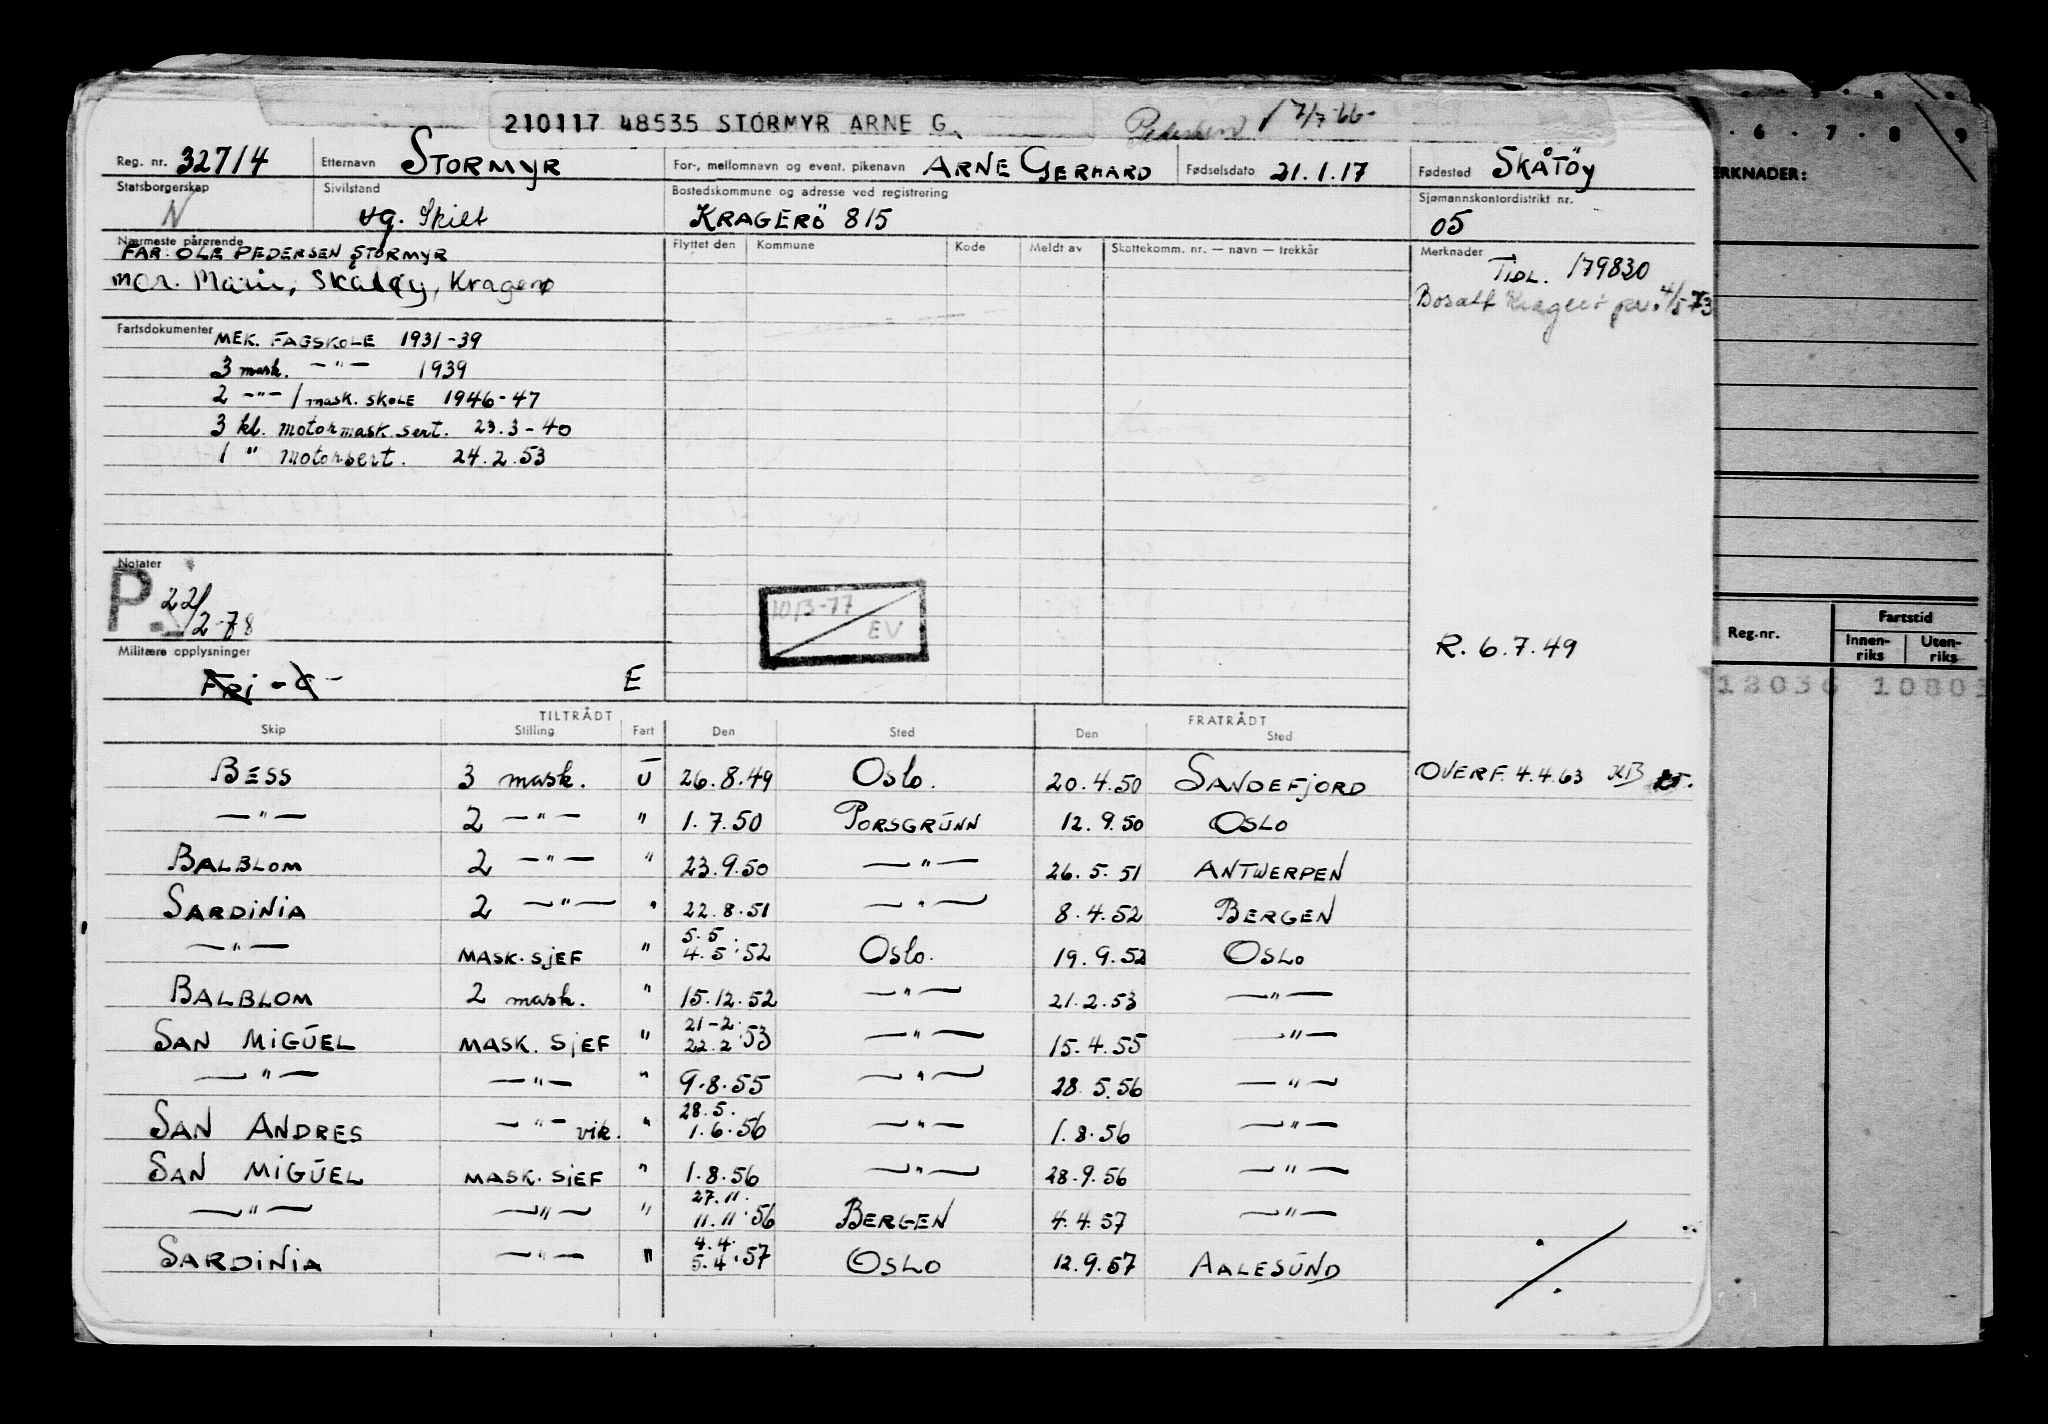 210117 48535 STORMYR ARNE G. Pedersen 17/7-66-
Reg. nr. 32714 Etternavn STORMYR For-, mellomnavn og event. pikenavn ARNE GERHARD Fødselsdato 21.1.17 Fødested SKÅTÖY
Statsborgerskap N Sivilstand Skilt Bostedskommune og adresse ved registrering KRAGERÖ 815 Sjømannskontordistrikt nr. 05
Nærmeste pårørende Flyttet den Kommune Kode Meldt av Skattekomm. nr. — navn — trekkår Merknader
FAR: OLE PEDERSEN STORMYR TIDL. 179830
mor. Marie, Skåtøy, Kragerø Bosatt Kragerø 4/5-73
Fartsdokumenter MEK. FAGSKOLE 1931-39
3 mask. —"— 1939
2 —"— / mask. SKOLE 1946-47
3 kl. motormask.sert. 23.3-40
1 " motorsert. 24.2.53
Notater
P. 22/2-78
10/3-77 EV
Militære opplysninger R. 6.7.49
FRI - E
TILTRÅDT FRATRÅDT
Skip Stilling Fart Den Sted Den Sted
BESS 3 mask. U 26.8.49 Oslo. 20.4.50 SANDEFJORD OVERF. 4.4.63 KB
—"— 2 —"— " 1.7.50 PORSGRUNN 12.9.50 OSLO
BALBLOM 2 —"— " 23.9.50 —"— 26.5.51 ANTWERPEN
SARDINIA 2 —"— " 22.8.51 —"— 8.4.52 BERGEN
—"— MASK.SJEF " 5.5. 4.5.52 Oslo. 19.9.52 OSLO
BALBLOM 2 mask. " 15.12.52 —"— 21.2.53 —"—
SAN MIGUEL MASK. SJEF " 21-2. 22.2.53 —"— 15.4.55 —"—
—"— —"— " 9.8.55 —"— 28.5.56 —"—
SAN ANDRES —"— vik. " 28.5. 1.6.56 —"— 1.8.56 —"—
SAN MIGUEL MASK.SJEF " 1.8.56 —"— 28.9.56 —"—
—"— —"— " 27.11. 11.11.56 BERGEN 4.4.57 —"—
SARDINIA —"— " 4.4. 5.4.57 OSLO 12.9.57 AALESUND
6 7 8 9
ERKNADER:
Reg.nr. Fartstid
Innenriks Utenriks
1803 10801